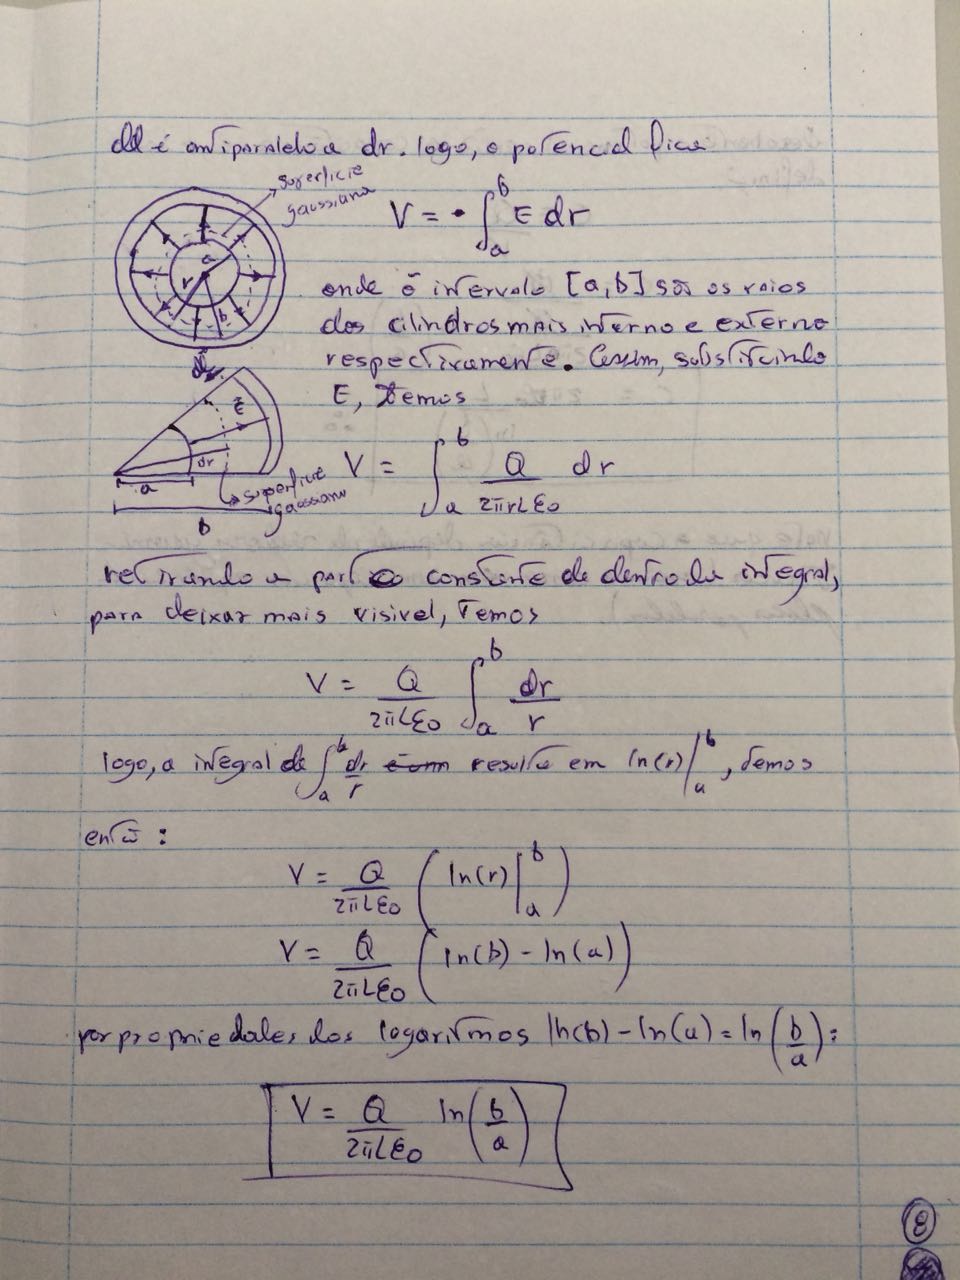 dl é antiparalelo a dr. logo, o potencial fica
superfície
gaussiana
a
r
b
V = - ∫_a^b E dr
onde o intervalo [a,b] são os raios
dos cilindros mais interno e externo
respectivamente. Assim, substituindo
E, temos
E
dr
a
b
superfície
gaussiana
V = ∫_a^b Q/(2πrLε0) dr
retirando a parte constante de dentro da integral,
para deixar mais visivel, temos
V = Q/(2πLε0) ∫_a^b dr/r
logo, a integral de ∫_a^b dr/r resulta em ln(r)|_a^b, temos
então:
V = Q/(2πLε0) (ln(r)|_a^b)
V = Q/(2πLε0) (ln(b) - ln(a))
por propriedades dos logaritmos ln(b) - ln(a) = ln(b/a):
V = Q/(2πLε0) ln(b/a)
8